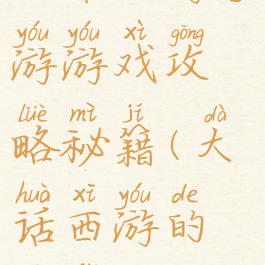 yóu yóu xì gōng
游游戏攻
lüè mì jí dà
略秘籍(大
huà xī yóu de
话西游的